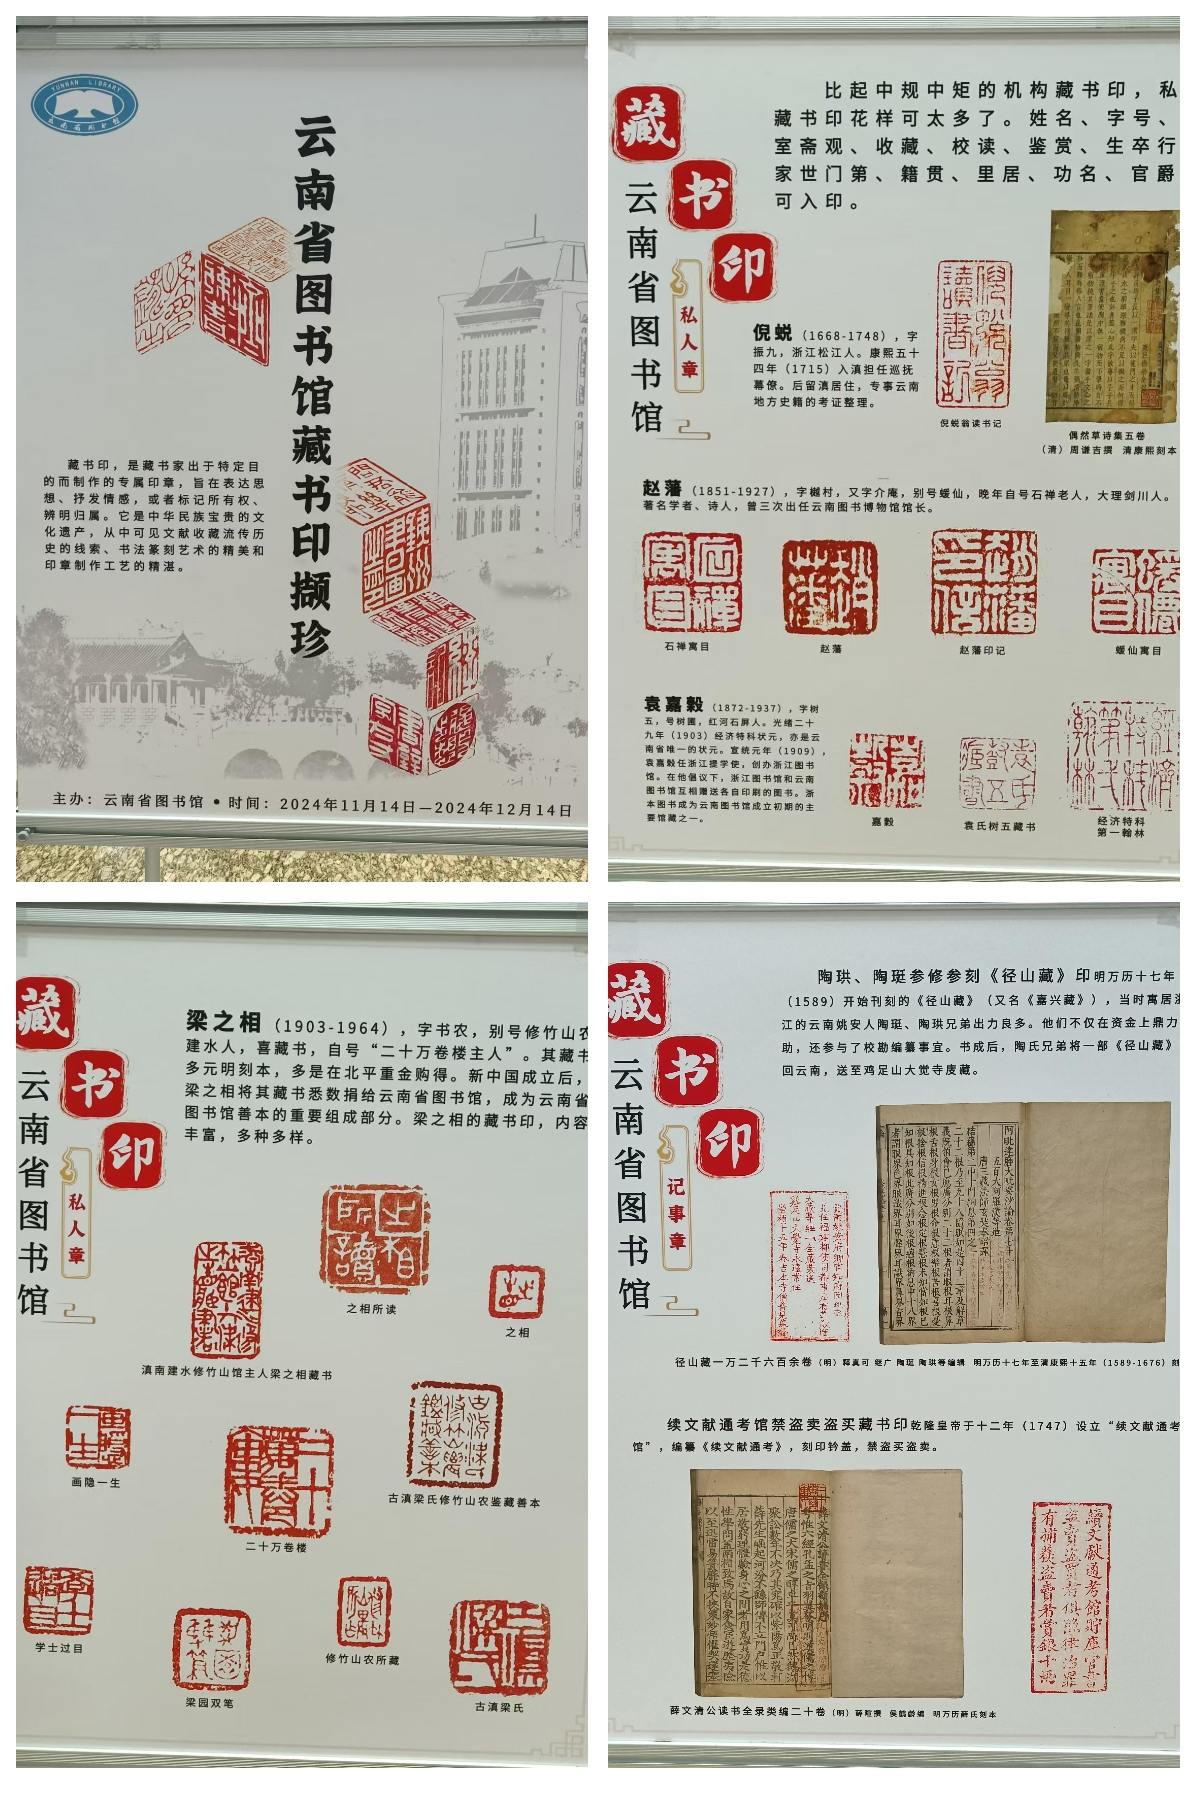 YUNNAN LIBRARY
云南省图书馆
云南省图书馆藏书印撷珍
藏书印，是藏书家出于特定目
的而制作的专属印章，旨在表达思
想、抒发情感，或者标记所有权、
辨明归属。它是中华民族宝贵的文
化遗产，从中可见文献收藏流传历
史的线索、书法篆刻艺术的精美和
印章制作工艺的精湛。
主办：云南省图书馆 • 时间：2024年11月14日—2024年12月14日
藏书印
云南省图书馆
私人章
比起中规中矩的机构藏书印，私
藏书印花样可太多了。姓名、字号、
室斋观、收藏、校读、鉴赏、生卒行
家世门第、籍贯、里居、功名、官爵
可入印。
倪蜕（1668-1748），字
振九，浙江松江人。康熙五十
四年（1715）入滇担任巡抚
幕僚。后留滇居住，专事云南
地方史籍的考证整理。
倪蜕翁读书记
偶然草诗集五卷
（清）周谦吉撰 清康熙刻本
赵藩（1851-1927），字樾村，又字介庵，别号蝯仙，晚年自号石禅老人，大理剑川人。
著名学者、诗人，曾三次出任云南图书博物馆馆长。
石禅寓目
赵藩
赵藩印记
蝯仙寓目
袁嘉穀（1872-1937），字树
五，号树圃，红河石屏人。光绪二十
九年（1903）经济特科状元，亦是云
南省唯一的状元。宣统元年（1909），
袁嘉穀任浙江提学使，创办浙江图书
馆。在他倡议下，浙江图书馆和云南
图书馆互相赠送各自印刷的图书。浙
本图书成为云南图书馆成立初期的主
要馆藏之一。
嘉穀
袁氏树五藏书
经济特科
第一翰林
藏书印
云南省图书馆
私人章
梁之相（1903-1964），字书农，别号修竹山农
建水人，喜藏书，自号“二十万卷楼主人”。其藏书
多元明刻本，多是在北平重金购得。新中国成立后，
梁之相将其藏书悉数捐给云南省图书馆，成为云南省
图书馆善本的重要组成部分。梁之相的藏书印，内容
丰富，多种多样。
滇南建水修竹山馆主人梁之相藏书
之相所读
之相
画隐一生
二十万卷楼
古滇梁氏修竹山农鉴藏善本
学士过目
梁园双笔
修竹山农所藏
古滇梁氏
藏书印
云南省图书馆
记事章
陶珙、陶珽参修参刻《径山藏》印明万历十七年
（1589）开始刊刻的《径山藏》（又名《嘉兴藏》），当时寓居浙
江的云南姚安人陶珽、陶珙兄弟出力良多。他们不仅在资金上鼎力
助，还参与了校勘编纂事宜。书成后，陶氏兄弟将一部《径山藏》
回云南，送至鸡足山大觉寺庋藏。
径山藏一万二千六百余卷（明）释真可 继广 陶珽 陶珙等编辑 明万历十七年至清康熙十五年（1589-1676）刻
续文献通考馆禁盗卖盗买藏书印乾隆皇帝于十二年（1747）设立“续文献通考
馆”，编纂《续文献通考》，刻印钤盖，禁盗买盗卖。
續文獻通考館貯庫官書
薛文清公读书全录类编二十卷（明）薛瑄撰 侯鹤龄编 明万历薛氏刻本